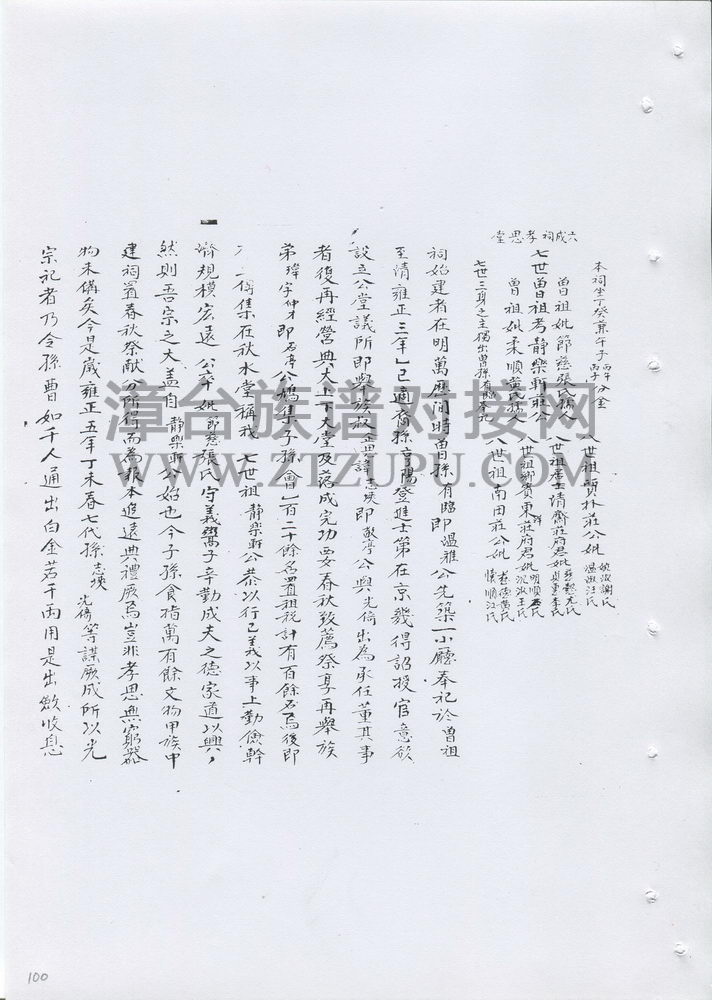 六成祠孝思堂
本祠坐丁癸兼午子丙午丙子分金
曾祖妣節慈張氏孺人
七世曾祖考靜樂軒莊公
曾祖妣柔順黃氏孺人
八世祖質林莊公妣
溫淑汪氏
八世祖居士清齋莊府君妣
八世祖鄉賓東莊府君妣
八世祖南田莊公妣
懷順江氏
七世三身之主獨出曾孫有臨奉祀
祠始建者在明萬曆間時曾孫有臨即溫雅公先築一小廳奉祀於曾祖
至清雍正三年乙巳適裔孫亨陽登進士第在京畿得詔授官意欲
設立公堂議所即與族叔孟譁志埉即敲亭公與光倚出為承任董其事
者復再經營興大上下大堂及落成完功要春秋致薦祭享再舉族
弟瑋字仲才即君亭公鳩集子孫會一百二十餘名置租稅計有百餘石焉後即
倚集在秋水堂稱我七世祖靜樂軒公恭以行己義以事上勤儉幹
濟規模宏遠公卒妣節慈張氏守義鸞子辛勤成夫之德家道以興，
然則吾宗之大蓋自靜樂軒公始也今子孫食指萬有餘文物甲族中
建祠置春秋祭獻分所得而為報本追遠典禮厥焉豈非孝思無窮器
物未備矣今是歲雍正五年丁未春七代孫志埉光倚等謀厥成所以光
宗記者乃令孫曹如千人通出白金若干兩用是出斂收息
漳台族谱对接网
WWW.ZTZUPU.COM
100